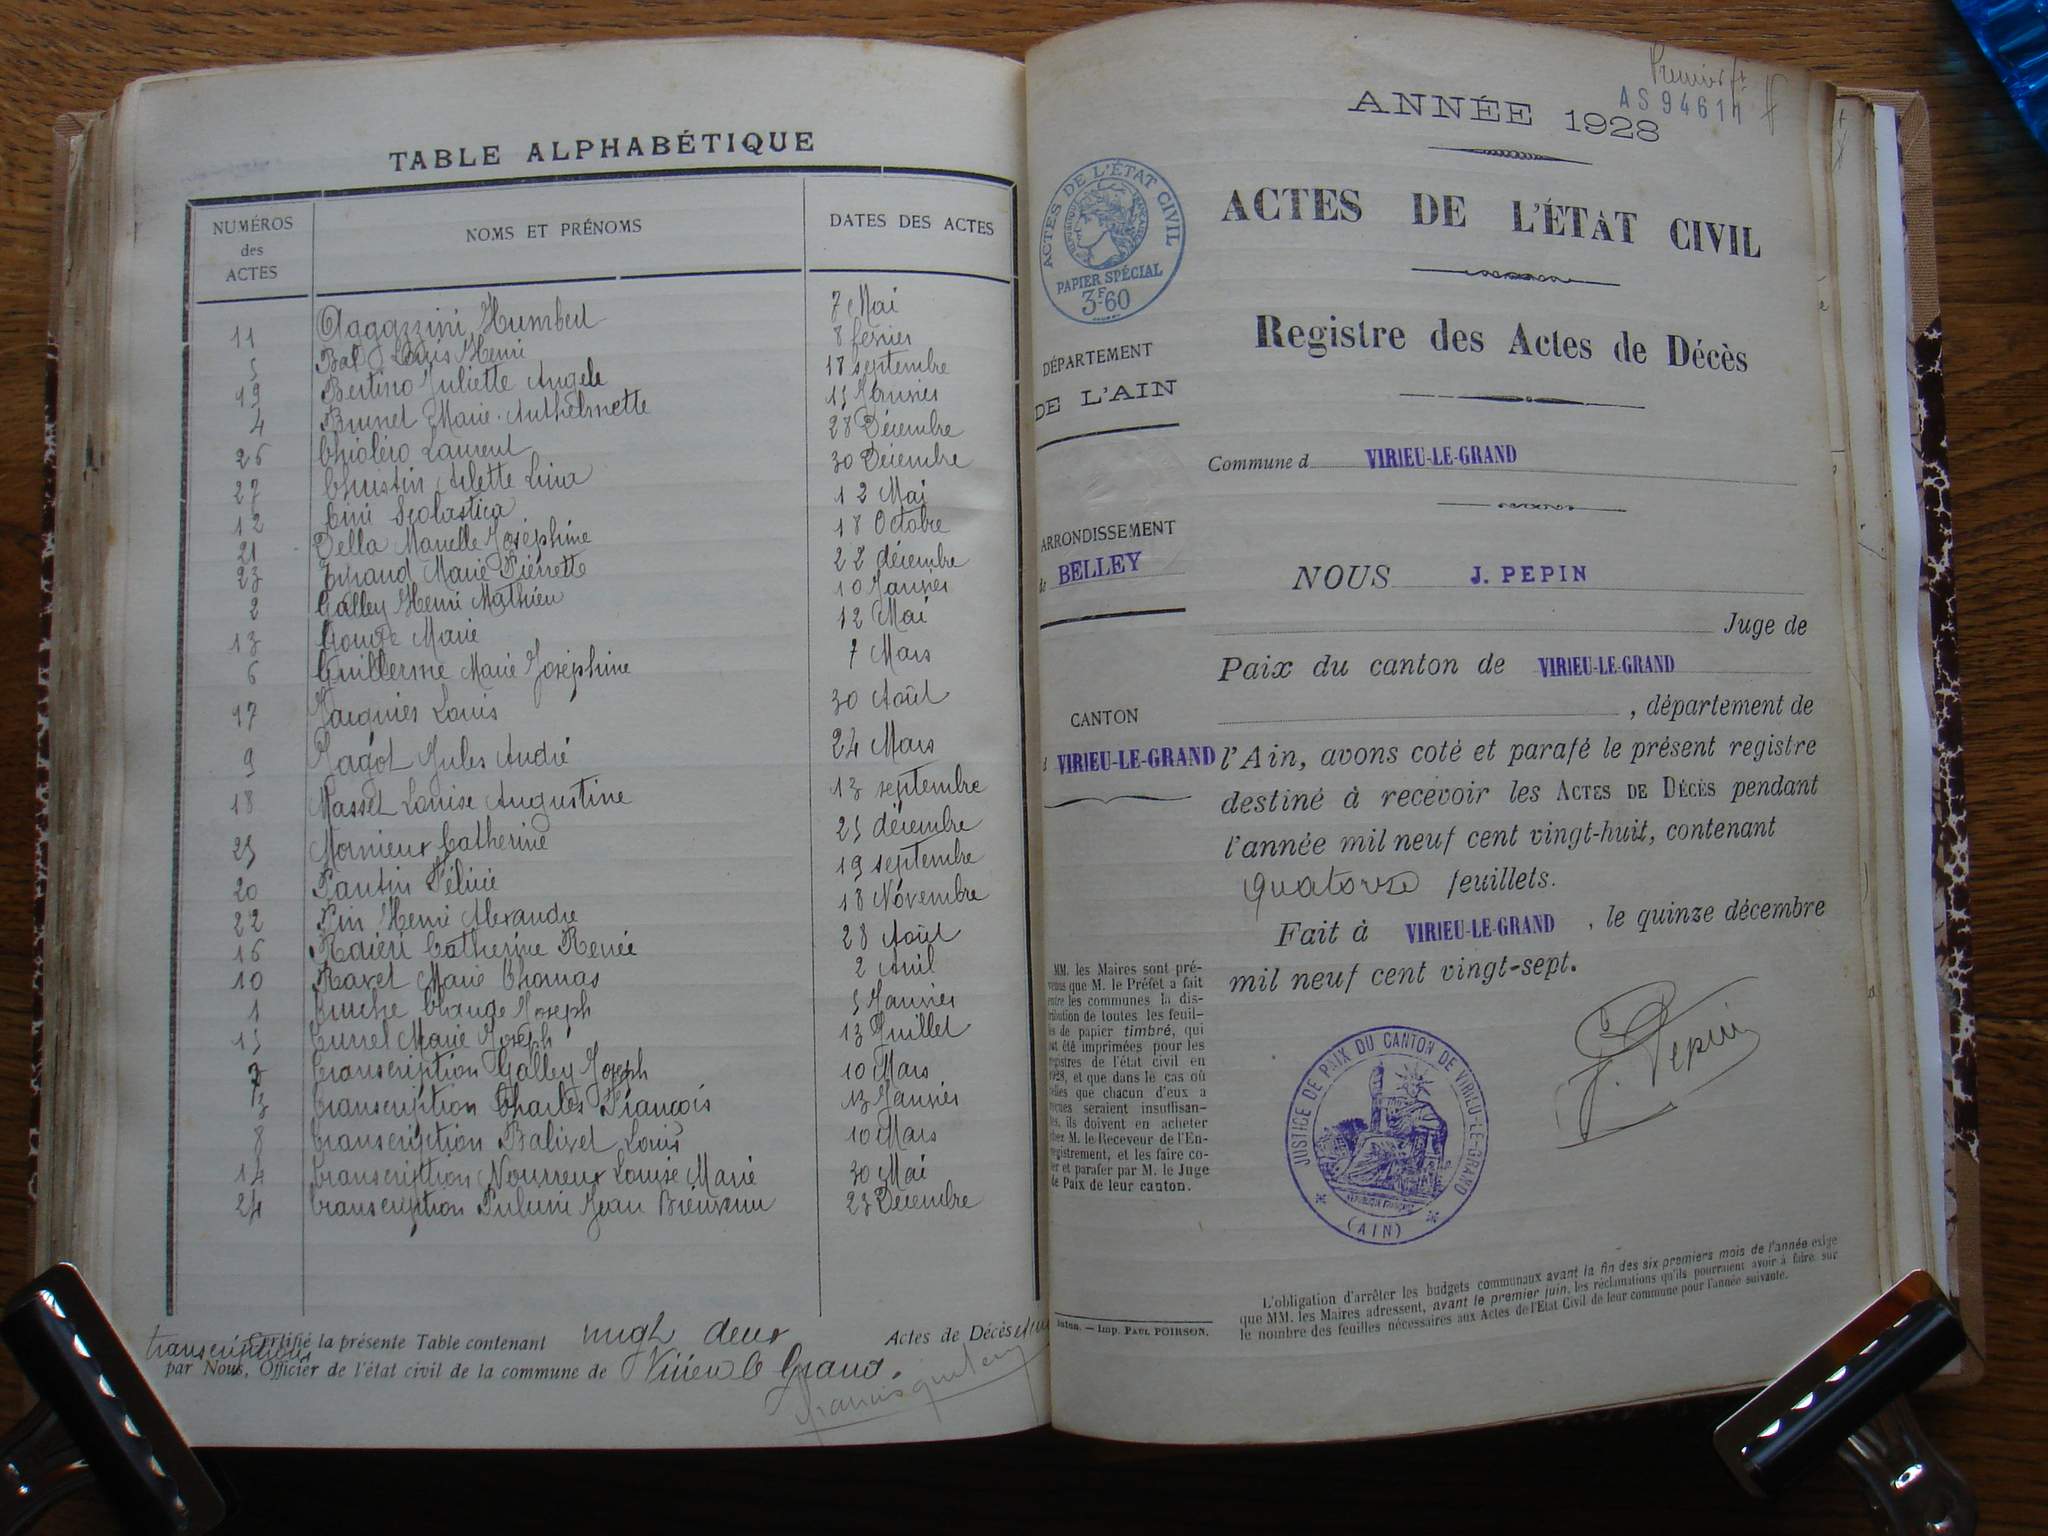 TABLE ALPHABÉTIQUE
NUMÉROS des ACTES | NOMS ET PRÉNOMS | DATES DES ACTES
11 Humbert 7 Mai
5 Louis Henri 8 février
19 Bertino Juliette Angele 18 septembre
4 Brunet Marie Anthelmette 15 Janvier
26 Chioléro Laurent 28 Décembre
27 Arlette Lina 30 Décembre
12 Cini Scolastica 12 Mai
21 Della Joséphine 18 Octobre
23 Marie Pierrette 22 décembre
2 Galley Henri Mathieu 10 Janvier
13 Marie 12 Mai
6 Guillerme Marie Joséphine 7 Mars
17 Jacquier Louis 30 Août
9 Jagot Jules André 24 Mars
18 Masset Louise Augustine 13 septembre
25 Mornieux Catherine 25 décembre
20 Pantin 19 septembre
22 Pin Henri Alexandre 18 Novembre
16 Raiéri Catherine Renée 28 Août
10 Ravet Marie Thomas 2 Avril
1 Claude Joseph 5 Janvier
15 Marie Joseph 13 Juillet
7 transcription Galley Joseph 10 Mars
3 transcription Charles François 13 Janvier
8 transcription Balivet Louis 10 Mars
14 transcription Nourreux Louise Marie 30 Mai
24 transcription Jean Bienvenu 23 Décembre
Certifié la présente Table contenant vingt deux Actes de Décès
transcriptions
par Nous, Officier de l'état civil de la commune de Virieu le Grand.
Premier ft
AS 94611
ANNÉE 1928
ACTES DE L'ÉTAT CIVIL
PAPIER SPÉCIAL
3F60
RÉPUBLIQUE FRANÇAISE
ACTES DE L'ÉTAT CIVIL
Registre des Actes de Décès
DÉPARTEMENT
DE L'AIN
Commune d VIRIEU-LE-GRAND
ARRONDISSEMENT
de BELLEY
NOUS J. PEPIN
Juge de
Paix du canton de VIRIEU-LE-GRAND
, département de
CANTON
d VIRIEU-LE-GRAND
l'Ain, avons coté et parafé le présent registre
destiné à recevoir les ACTES DE DÉCÈS pendant
l'année mil neuf cent vingt-huit, contenant
quatorze feuillets.
Fait à VIRIEU-LE-GRAND, le quinze décembre
mil neuf cent vingt-sept.
J. Pepin
MM. les Maires sont pré-
venus que M. le Préfet a fait
entre les communes la dis-
tribution de toutes les feuil-
les de papier timbré, qui
ont été imprimées pour les
registres de l'état civil en
1928, et que dans le cas où
celles que chacun d'eux a
reçues seraient insuffisan-
tes, ils doivent en acheter
chez M. le Receveur de l'En-
registrement, et les faire co-
ter et parafer par M. le Juge
de Paix de leur canton.
JUSTICE DE PAIX DU CANTON DE VIRIEU-LE-GRAND
(AIN)
L'obligation d'arrêter les budgets communaux avant la fin des six premiers mois de l'année exige
que MM. les Maires adressent, avant le premier juin, les réclamations qu'ils pourraient avoir à faire sur
le nombre des feuilles nécessaires aux Actes de l'Etat Civil de leur commune pour l'année suivante.
Imp. PAUL POIRSON.